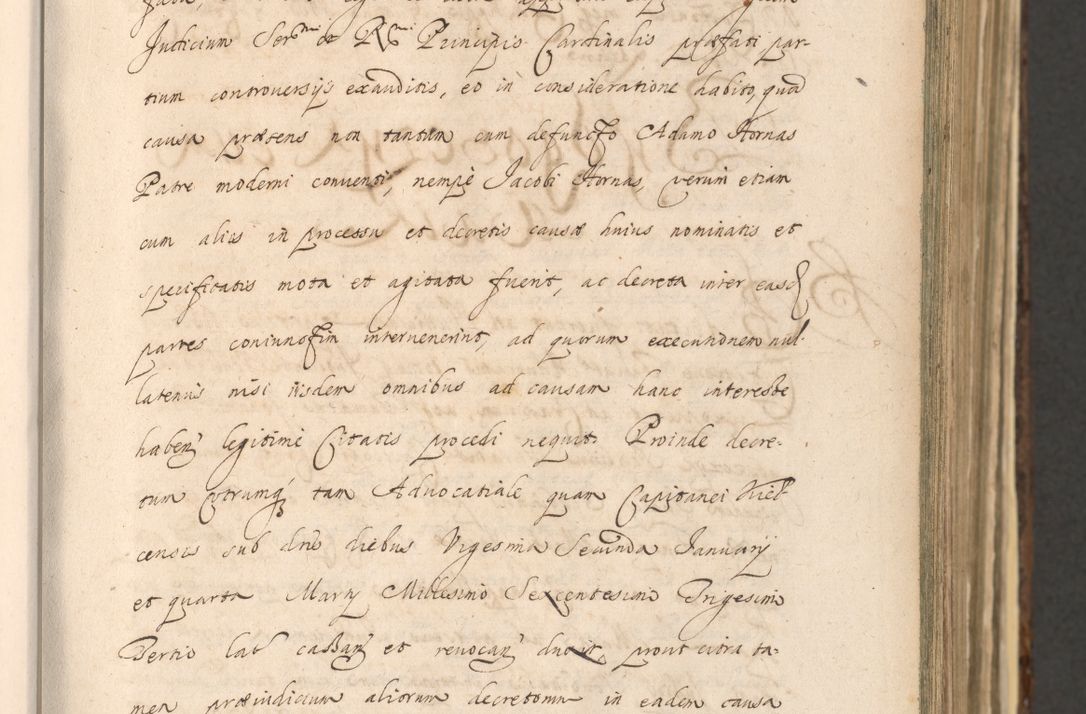 Judicium Ser^mi et R^mi Principis Cardinalis præfati par-
tium controversijs exauditis, eo in consideratione habito, quod
causa præsens non tantum cum defuncto Adamo Hornas
Patre moderni conventi, nempè Jacobi Hornas, verum etiam
cum alijs in processu et decretis causæ huius nominatis et
specificatis mota et agitata fuerit, ac decreta inter easd
partes coniunctim intervenerint, ad quorum executionem nul-
latenus nisi iisdem omnibus ad causam hanc interesse
haben legitimè Citatis procedi nequit. Proinde decre-
tum utrumq tam Advocatiale quam Capitanei Kiel-
censis sub dnè diebus Vigesima Secunda Januarij
et quarta Martij Millesimo Sexcentesimo Trigesimo
Tertio lat cassan et revocan duxit, prout citra ta-
men præiudicium aliorum decretorum in eadem causa